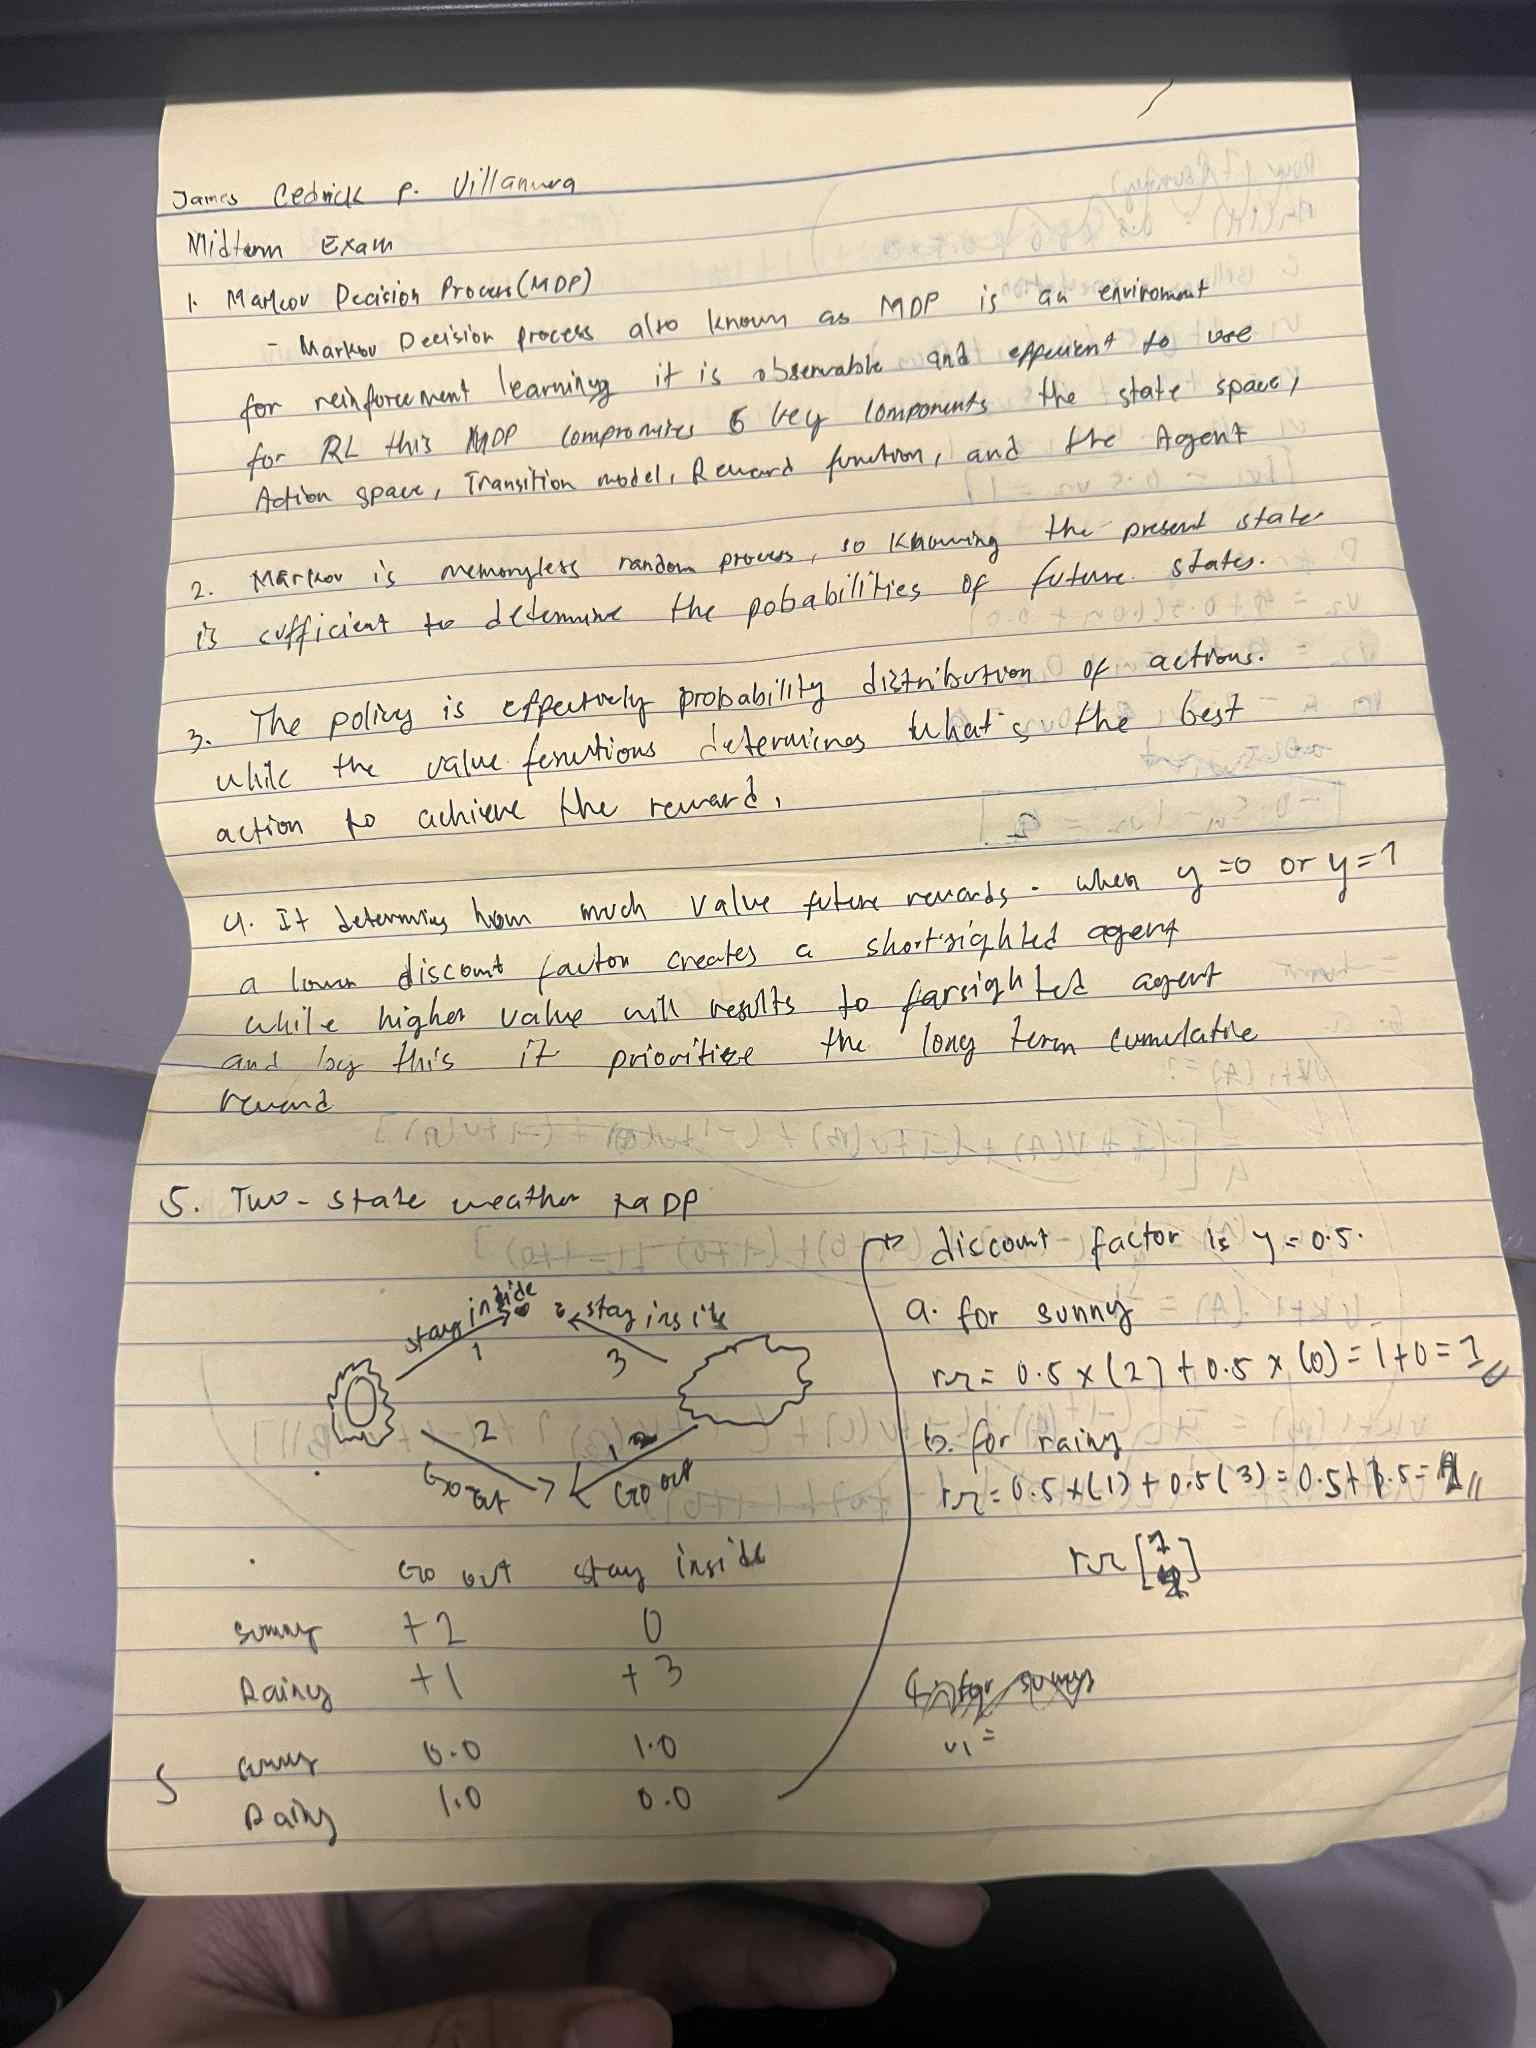 James Cedrick P. Villanuva
Midterm Exam
1. Markov Decision Process (MDP)
- Markov Decision process also known as MDP is an enviroment
for reinforcement learning it is observable and effecient to use
for RL this MDP compromises 5 key components the state space,
Action space, Transition model, Reward function, and the Agent
2. Markov is memoryless random process, so knowing the present state
is sufficient to determine the pobabilities of future states.
3. The policy is effectively probability distribution of actions.
while the value functions determines what's the best
action to achieve the reward.
4. It determines how much value future rewards. when y=0 or y=1
a lower discount factor creates a shortsighted agent
while higher value will results to farsighted agent
and by this it prioritize the long term cumulative
reward
5. Two-state weather MDP
stay inside
1
stay inside
3
2
Go out
1
Go out
Go out stay inside
sunny +2 0
Rainy +1 +3
S sunny 0.0 1.0
Rainy 1.0 0.0
discount factor is y = 0.5.
a. for sunny
rπ = 0.5 x (2) + 0.5 x (0) = 1+0 = 1
b. for rainy
rπ = 0.5 x (1) + 0.5 (3) = 0.5 + 1.5 = 2
rπ [1
2]
v1 =